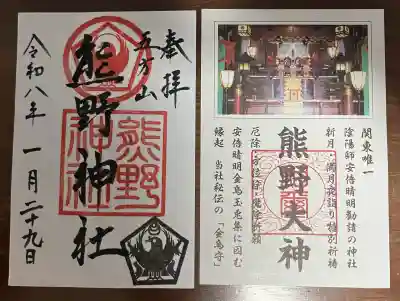 奉拝
五方山
熊野神社
令和八年 一月二十九日
熊野神社
関東唯一
陰陽師安倍晴明勧請の神社
新月・満月夜詣り特別祈祷
熊野大神
厄除・方位除・魔除祈願
安倍晴明金烏玉兎集に因む
縁起 当社秘伝の「金烏守」